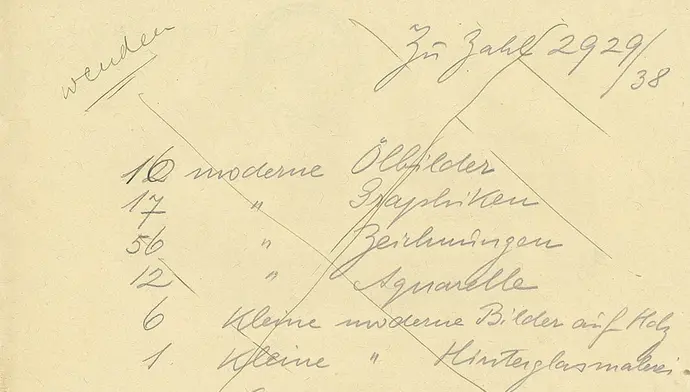 wenden
Zu Zahl 2929/38
16 moderne Ölbilder
17 " Graphiken
56 " Zeichnungen
12 " Aquarelle
6 kleine moderne Bilder auf Holz
1 kleine " Hinterglasmalerei.